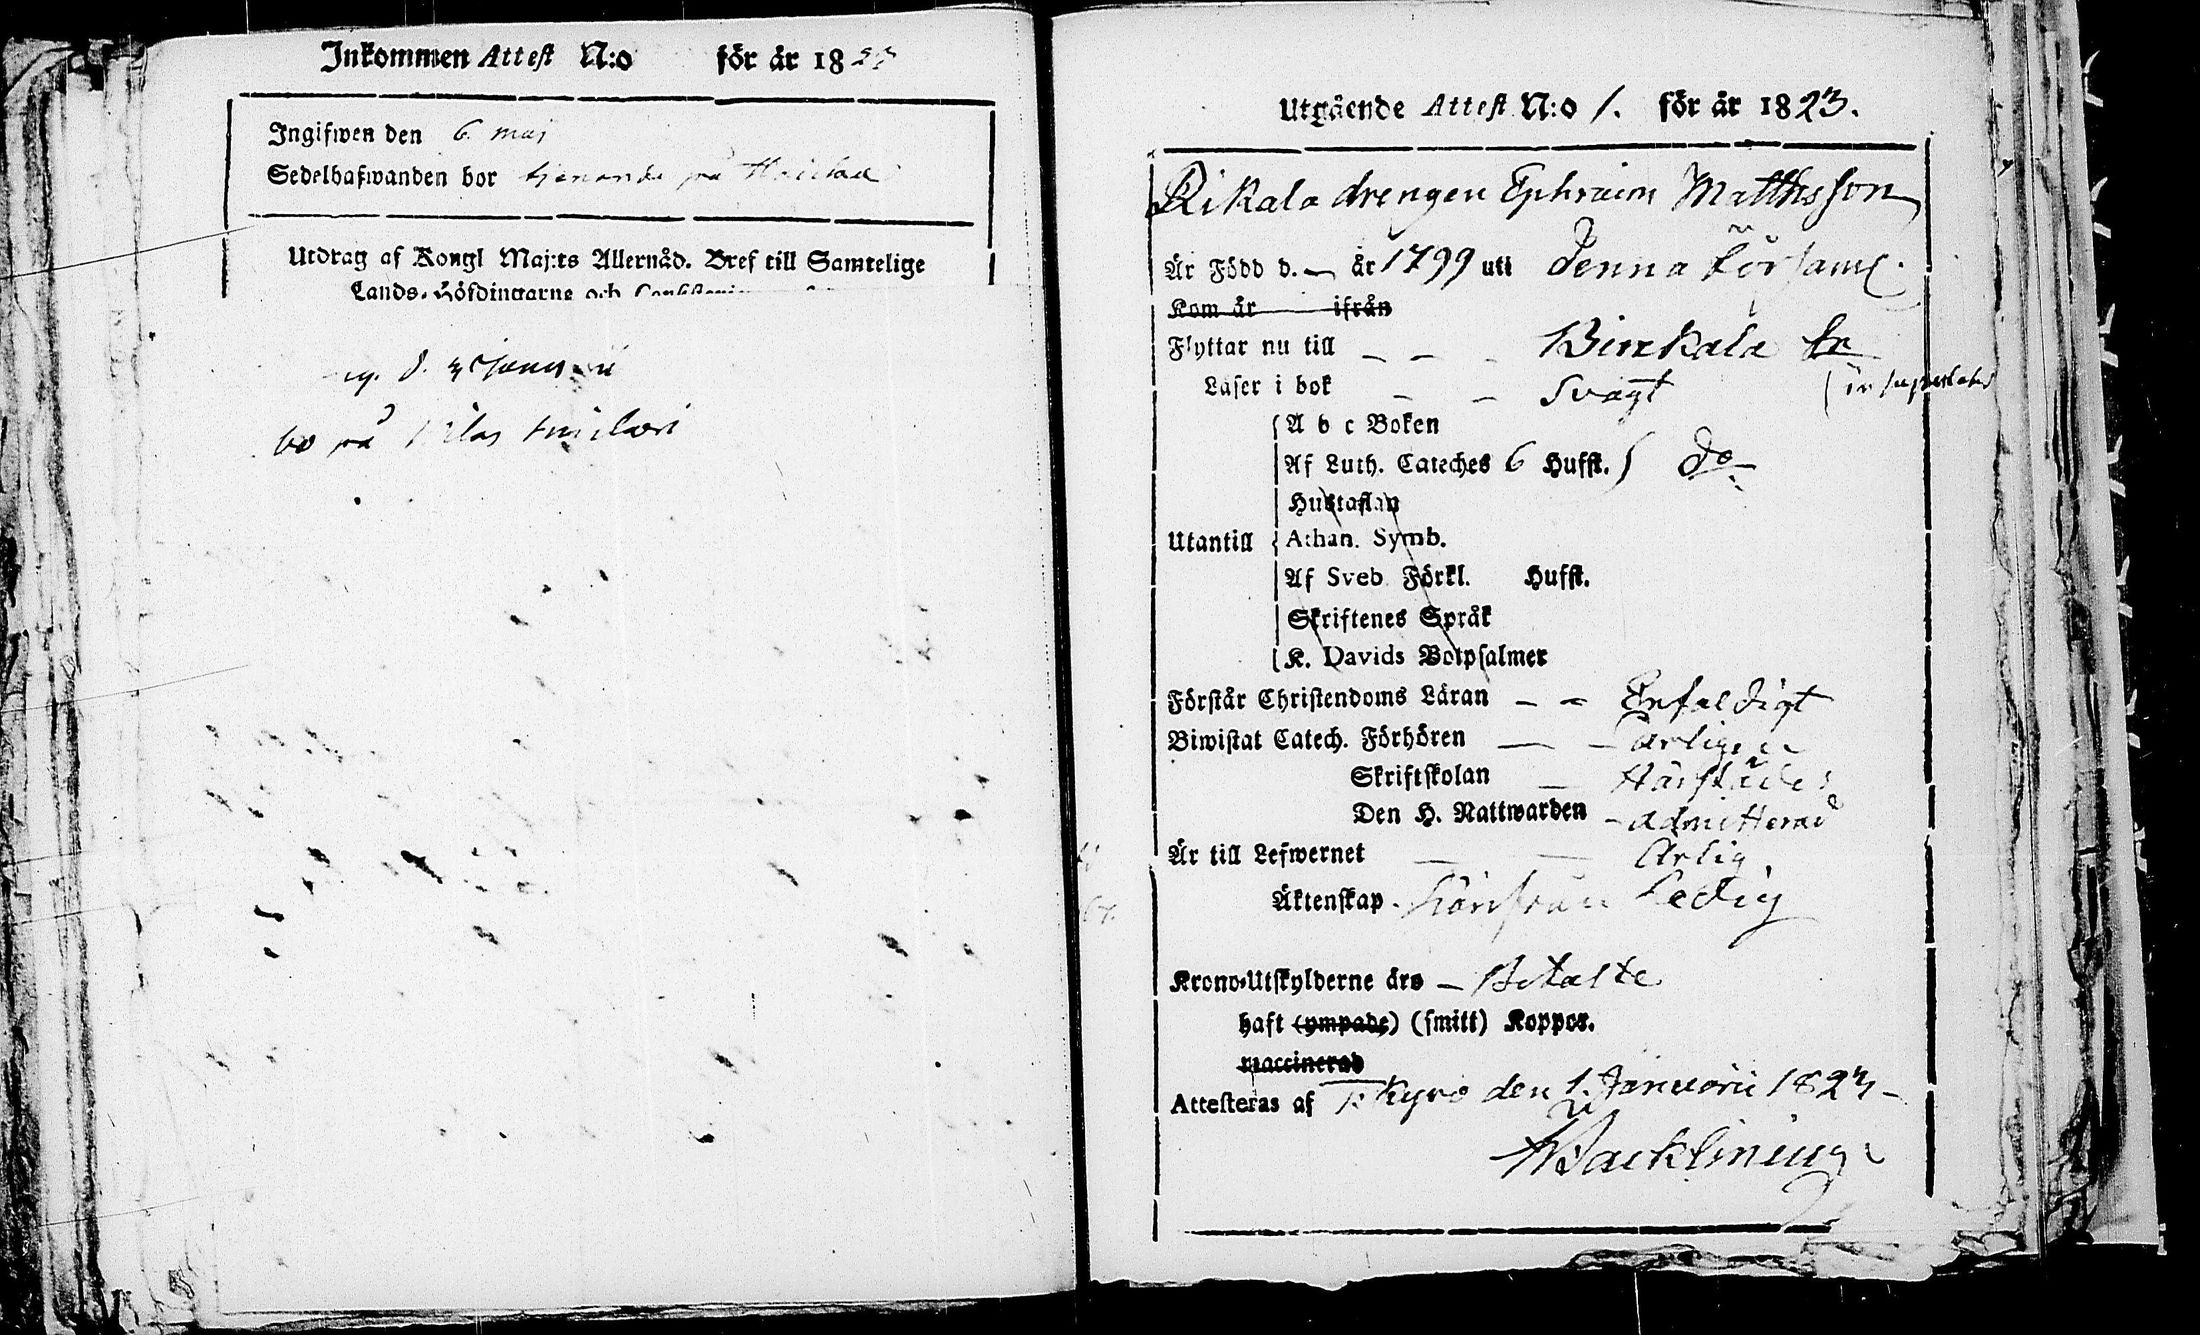 Inkommen Attest N:o för år 1823
Ingifwen den 6 maj
Sedelhafwanden bor tjenande på
Utdrag af Kongl Maj:ts Allernåd. Bref till Samtelige
Lands-Höfdingarne och
bo på
Utgående Attest N:o 1. för år 1823.
Rikala drengen Ephraim Matthsson
Är Född d. — år 1799 uti Denna Församl.
Kom år ifrån
Flyttar nu till _ _ _ Birkala
Läser i bok _ _ Svagt
A b c Boken
Af Luth. Cateches 6 Hufst. do
Hustaflan
Utantill Athan. Symb.
Af Sveb. Förkl. Hufst.
Skriftenes Språk
K. Davids Botpsalmer
Förstår Christendoms Läran _ _ Enfaldigt
Biwistat Catech. Förhören — — Årligen
Skriftskolan — Härstädes
Den H. Nattwarden — admitterad
Är till Lefwernet — — Ärlig
Äktenskap - Hörsträn Ledig
Krono-Utskylderne äro — Betalte
haft (ympade) (smitt) Koppor.
waccinerad
Attesteras af T. Kyro den 1. Januarii 1823 —